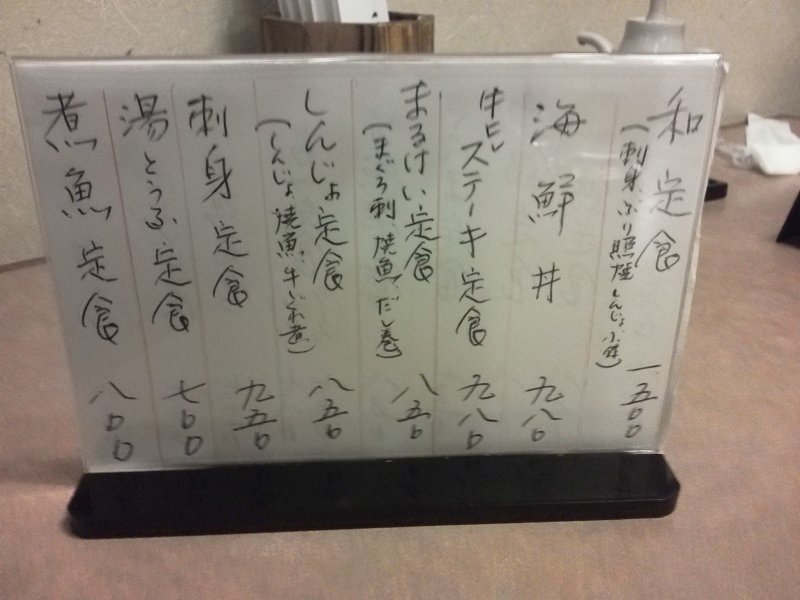 和定食
(刺身、ぶり照焼、しんじょ、小鉢)
一五〇〇
海鮮丼
九八〇
牛ヒレステーキ定食
九八〇
まるけい定食
(まぐろ刺、焼魚、だし巻)
八五〇
しんじょ定食
(しんじょ、焼魚、牛しぐれ煮)
八五〇
刺身定食
九五〇
湯とうふ定食
七〇〇
煮魚定食
八〇〇